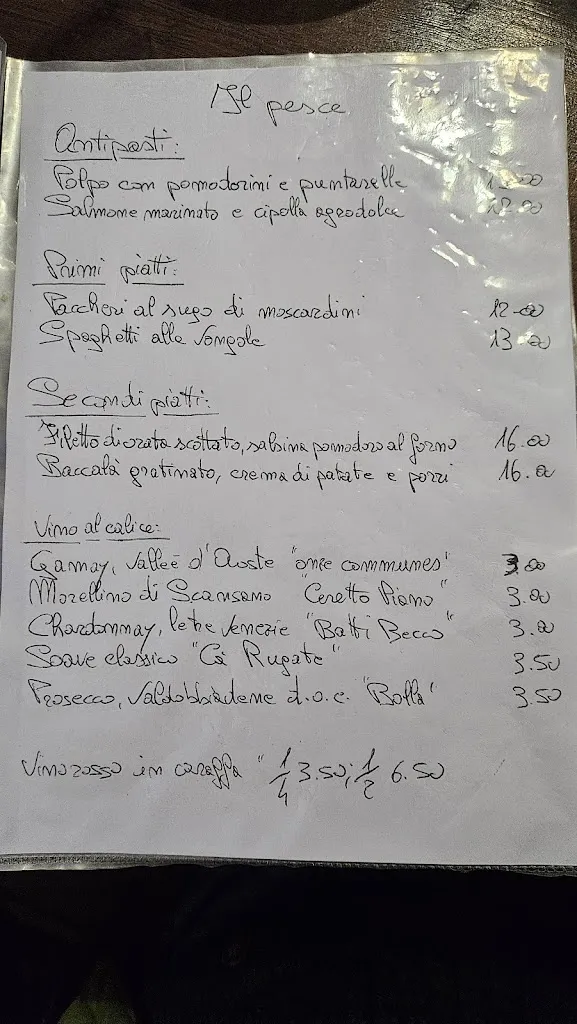 Il pesce
Antipasti:
Polpo con pomodorini e puntarelle
Salmone marinato e cipolla agrodolce 12.00
Primi piatti:
Paccheri al sugo di moscardini 12.00
Spaghetti alle vongole 13.00
Secondi piatti:
Filetto di orata scottato, salsina pomodoro al forno 16.00
Baccalà gratinato, crema di patate e porri 16.00
Vino al calice:
Gamay, Valleé d'Aoste "onze communes" 3.00
Morellino di Scansano "Ceretto Piano" 3.00
Chardonnay, le tre Venezie "Batti Becco" 3.00
Soave classico "Cà Rugate" 3.50
Prosecco, Valdobbiadene d.o.c. "Bolla" 3.50
Vino rosso in caraffa " 1/4 3.50; 1/2 6.50